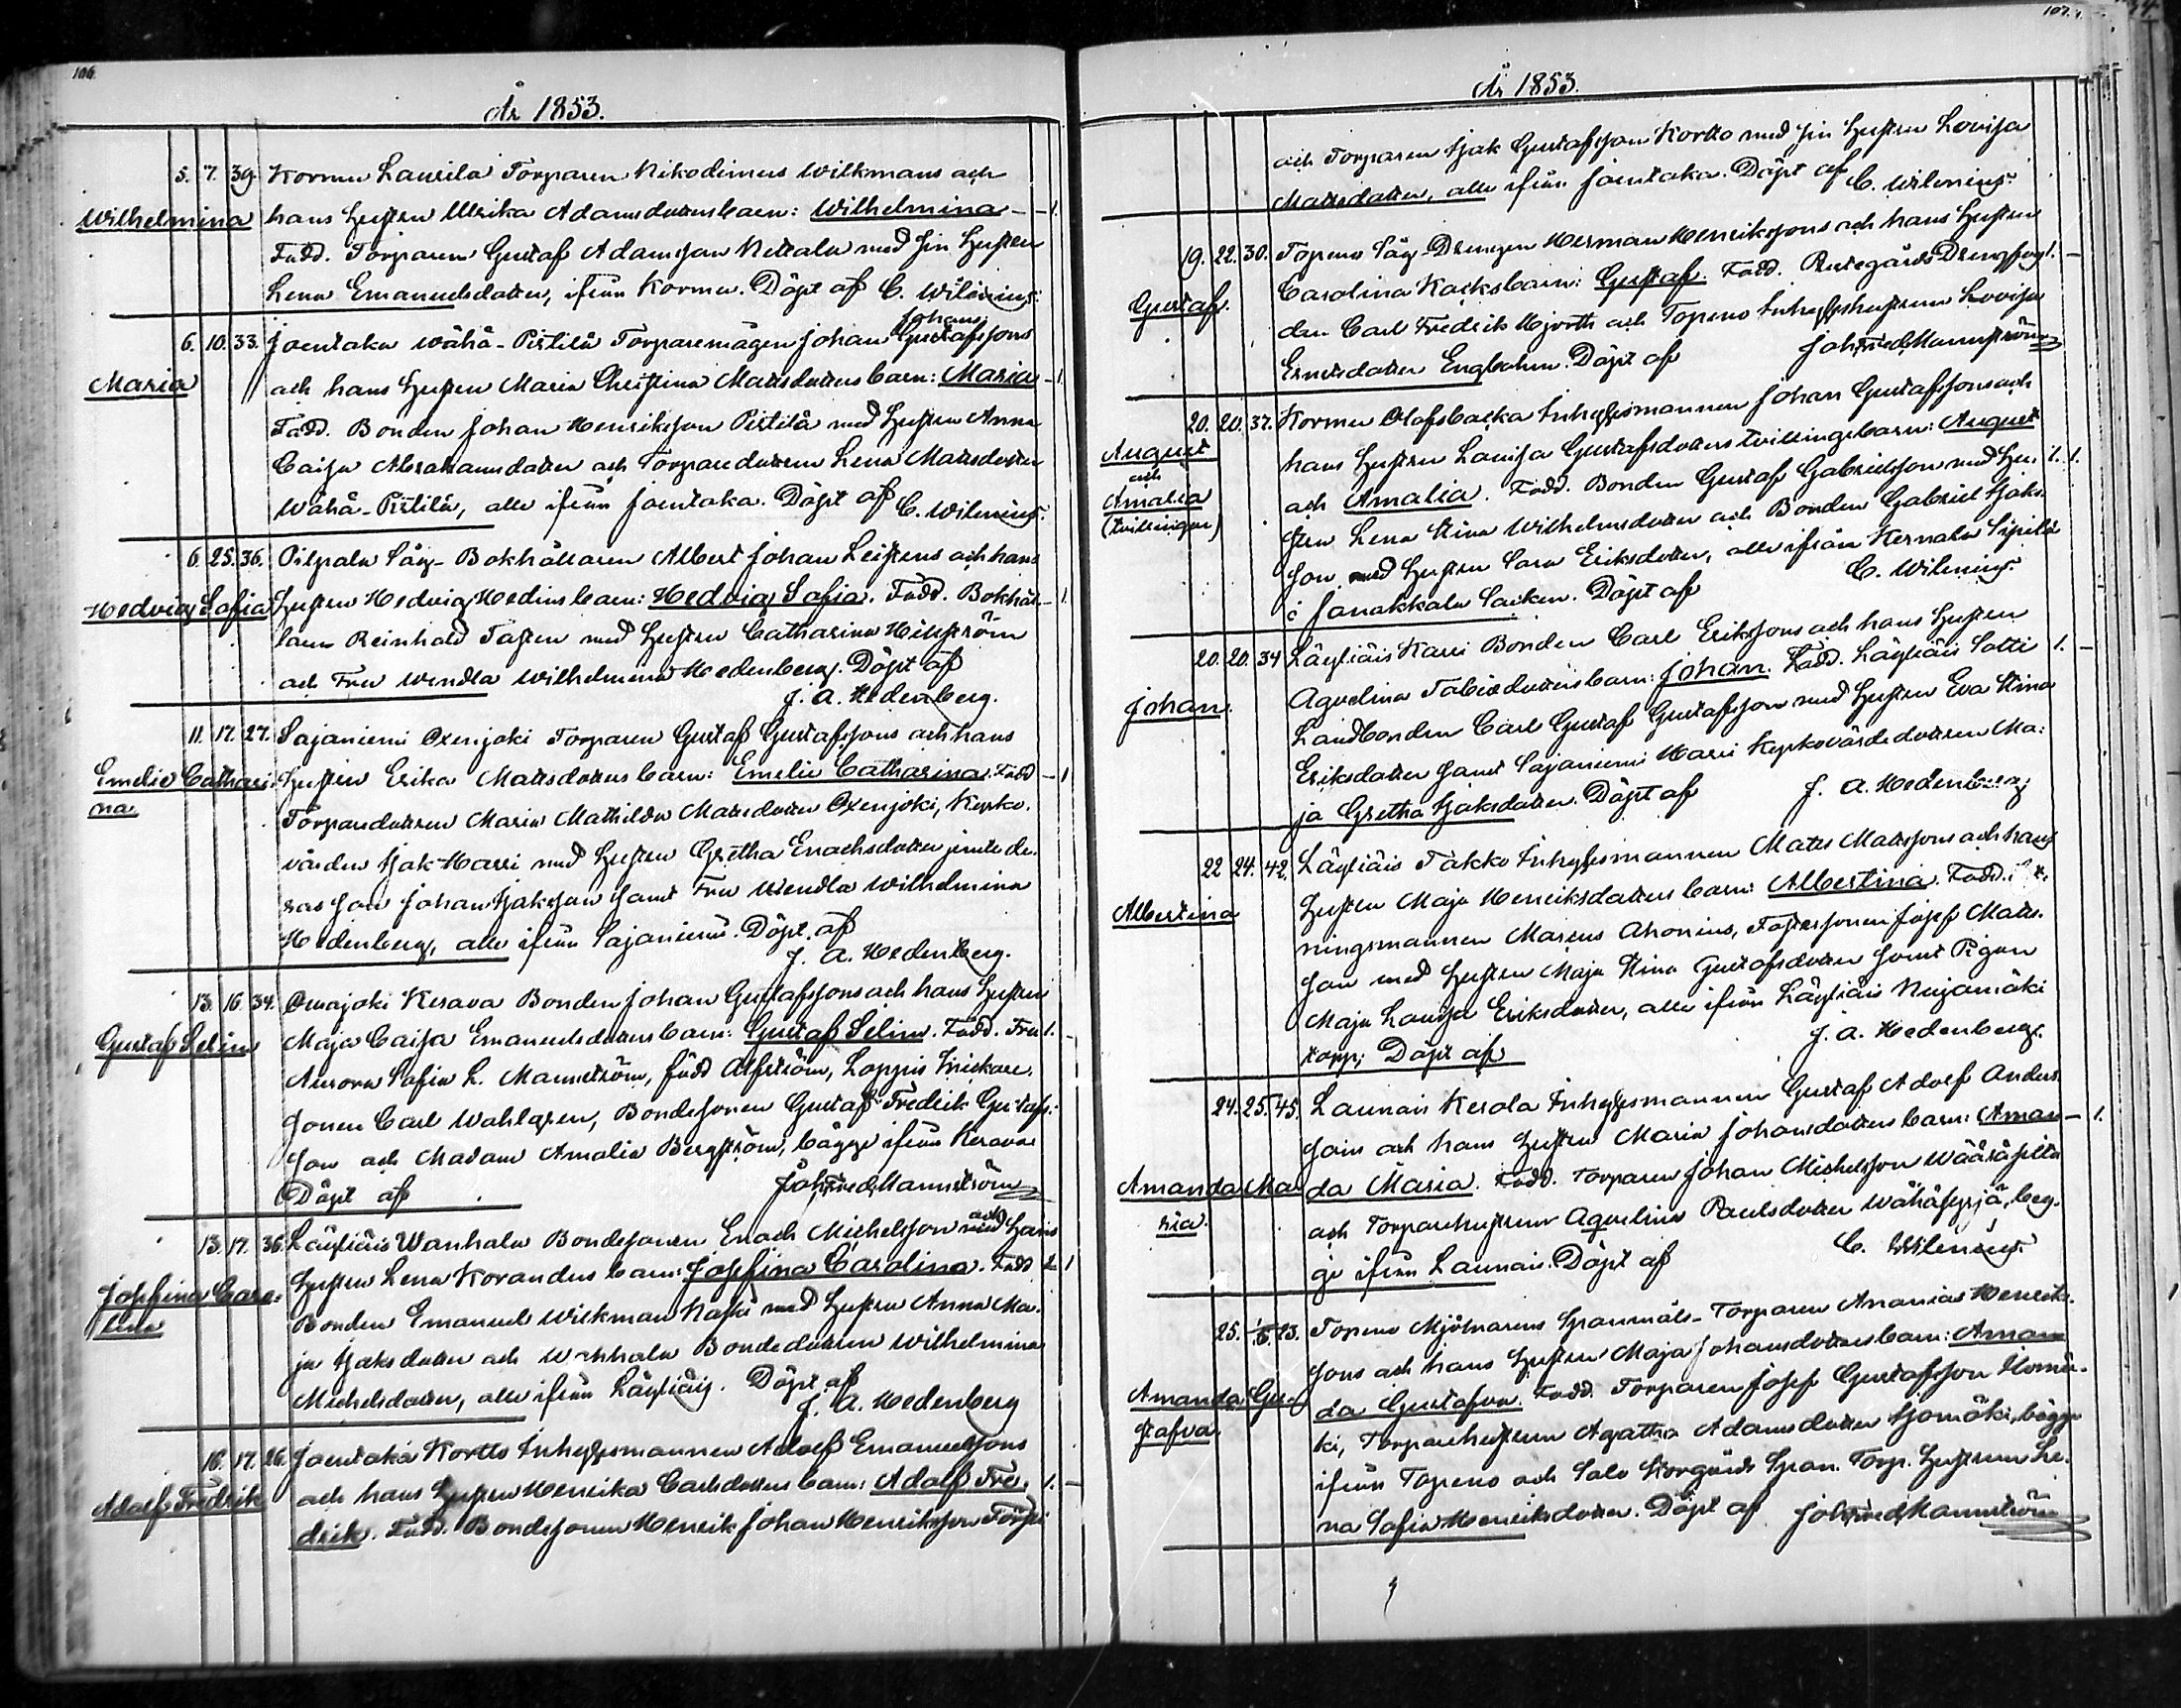 106.
År 1853.
5. 7. 39. Kormu Laurila Torparen Nikodimus Wilkmans och
Wilhelmina hans hustru Ulrika Adamsdotters barn: Wilhelmina — 1.
Fadd. Torparen Gustaf Adamsson Mettala med sin hustru
Lena Emanuelsdotter, ifrån Kormu. Döpt af C. Wilenius.
6. 10. 33. Joentaka Wähä-Pietilä Torparemågen Johan Johans Gustafssons
Maria och hans hustru Maria Christina Mattsdotters barn: Maria — 1.
Fadd. Bonden Johan Henriksson Pietilä med hustru Anna
Caisa Abrahamsdotter och Torparedottren Lena Mattsdotter
Wähä-Pietilä, alla ifrån Joentaka. Döpt af C. Wilenius.
6. 25. 36. Pilpala Såg-Bokhållaren Albert Johan Leistens och hans
Hedvig Sofia hustru Hedvig Hedins barn: Hedvig Sofia. Fadd. Bokhål- — 1.
laren Reinhold Tasten med hustru Catharina Hillström
och Fru Wendla Wilhelmina Hedenberg. Döpt af
J. A. Hedenberg.
11. 17. 27. Sajaniemi Oxenjoki Torparen Gustaf Gustafssons och hans
Emelie Cathari- hustru Erika Mattsdotters barn: Emelie Catharina. Fadd — 1
na. Torparedottren Maria Mathilda Mattsdotter Oxenjoki, Kyrko-
värden Isak Harri med hustru Gretha Enochsdotter jemte de-
ras son Johan Isaksson samt Fru Wendla Wilhelmina
Hedenberg, alla ifrån Sajaniemi. Döpt af
J. A. Hedenberg.
13. 16. 34. Ourajoki Kerava Bonden Johan Gustafssons och hans hustru
Gustaf Selim Maja Caisa Emanuelsdotters barn: Gustaf Selim. Fadd. Fru 1. -
Aurora Sofia L. Mannström, född Alfström, Loppis Snickare-
sonen Carl Wahlgren, Bondesonen Gustaf Fredrik Gustafs-
son och Madam Amalia Bergström, bägge ifrån Kerava
Döpt af Joh. Fred. Mannström
13. 17. 36. Läyliäis Wanhala Bondesonen Enoch Michelsson och hans
Josefina Caro- hustru Lena Koranders barn: Josefina Carolina. Fadd — 1
lina Bonden Emanuel Wickman Kaski med hustru Anna Ma-
ja Isaksdotter och Wanhala Bondedottren Wilhelmina
Michelsdotter, alla ifrån Läyliäis. Döpt af
J. A. Hedenberg
16. 17. 26. Joentaka Kortto Inhysesmannen Adolf Emanuelssons
Adolf Fredrik och hans hustru Henrika Carlsdotters barn: Adolf Fre- 1. -
drik. Fadd. Bondesonen Henrik Johan Henriksson
107.
År 1853.
och Torparen Isak Gustafsson Kortto med sin hustru Lovisa
Mattsdotter, alla ifrån Joentaka. Döpt af C. Wilenius.
19. 22. 30. Topeno Såg-Drengen Herman Henrikssons och hans hustru
Gustaf. Carolina Kacks barn: Gustaf. Fadd. 1. —
den Carl Fredrik Hjorth och Topeno Inhyseshustrun Lovisa
Ernstsdotter Engbohm. Döpt af Joh. Fred. Mannström
20. 20. 37. Kormu Olofsbacka Inhysesmannen Johan Gustafssons och
August hans hustru Lovisa Gustafsdotters tvillingebarn: August
och och Amalia. Fadd. Bonden Gustaf Gabrielsson med hu- 1. 1.
Amalia stru Lena Stina Wilhelmsdotter och Bonden Gabriel Isaks-
(tvillingar) son med hustru Sara Eriksdotter, alla ifrån Kernala Sipilä
i Janakkala Socken. Döpt af C. Wilenius.
20. 20. 34 Läyliäis Karri Bonden Carl Erikssons och hans hustru
Johan. Agvelina Tabiedotters barn: Johan. Fadd. Läyliäis Sotti 1. —
Landbonden Carl Gustaf Gustafsson med hustru Eva Stina
Eriksdotter samt Sajaniemi Harri Kyrkovärdsdottren Ma-
ja Gretha Isaksdotter. Döpt af J. A. Hedenberg
22 24. 42. Läyliäis Takko Inhysesmannen Matts Mattssons och hans
Albertina hustru Maja Henriksdotters barn: Albertina. Fadd.
ningsmannen Marcus Ahonius, Fostersonen Josef Matts-
son med hustru Maja Stina Gustafsdotter samt Pigan
Maja Lovisa Eriksdotter, alla ifrån Läyliäis Nujanmäki
torp; Döpt af J. A. Hedenberg.
24. 25. 45. Launais Kerola Inhysesmannen Gustaf Adolf Anders-
sons och hans hustru Maria Johansdotters barn: Aman- — 1.
Amanda Ma- da Maria. Fadd. Torparen Johan Michelsson
ria. och Torparehustrun Agvelina Paulsdotter Wähäsyrjä, beg-
ge ifrån Launais. Döpt af C. Wilenius.
25. 23. Topeno Mjölnarens Spanmåls-Torparen Ananias Henriks-
sons och hans hustru Maja Johansdotters barn: Aman
Amanda Gu- da Gustafva. Fadd. Torparen Josef Gustafsson
stafva. ki, Torparehustrun Agatha Adamsdotter Isomäki, bägge
ifrån Topeno och Salo Korgärds Span. Torp. hustrun Le-
na Sofia Henriksdotter. Döpt af Joh. Fred. Mannström